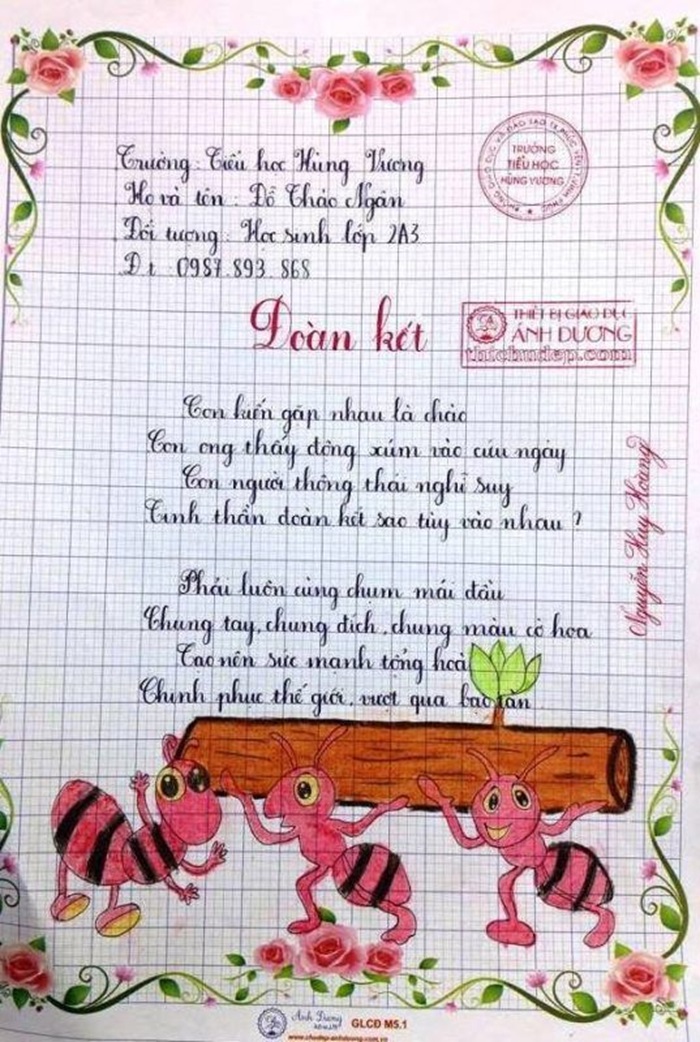 Trường: Tiểu học Hùng Vương
Họ và tên: Đỗ Thảo Ngân
Đối tượng: Học sinh lớp 2A3
Đt: 0987.893.868
TRƯỜNG
TIỂU HỌC
HÙNG VƯƠNG
Đoàn kết
THIẾT BỊ GIÁO DỤC
ÁNH DƯƠNG
thichudep.com
Con kiến gặp nhau là chào
Con ong thấy động xúm vào cứu ngay
Con người thông thái nghĩ suy
Tinh thần đoàn kết sao tùy vào nhau?
Nguyễn Huy Hoàng
Phải luôn cùng chụm mái đầu
Chung tay, chung đích, chung màu cờ hoa
Tạo nên sức mạnh tổng hoà
Chinh phục thế giới, vượt qua bạo tàn
Ánh Dương
GLCĐ M5.1
www.chudep.anhduong.com.vn